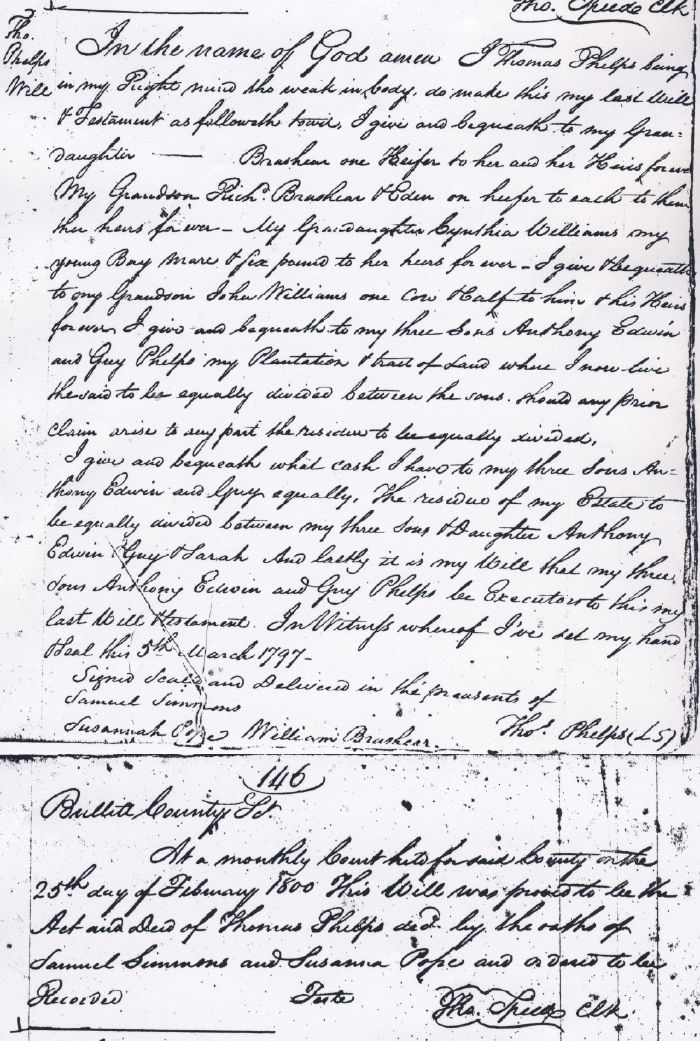 Tho. Speed Clk
Tho.
Phelps
Will
In the name of God amen I Thomas Phelps being
in my Right mind tho weak in body. do make this my last Will
& Testament as followeth towd. I give and bequeath to my Gran=
daughter — Brashear one Heifer to her and her Heirs forever
My Grandson Richd. Brashear & Eden on heifer to each to them
ther heirs forever - My Grandaughter Cynthia Williams my
young Bay mare & six pound to her heirs for ever - I give & bequeath
to my Grandson John Williams one Cow & Calf to him & his Heirs
forever I give and bequeath to my three Sons Anthony Edwin
and Guy Phelps my Plantation & tract of Land where I now live
the said to be equally divided between the sons. should any prior
claim arise to any part the residue to be equally divided.
I give and bequeath what cash I have to my three Sons An=
thony Edwin and Guy equally. The residue of my Estate to
be equally divided between my three Sons & Daughter Anthony
Edwin Guy & Sarah And lastly it is my Will that my three
Sons Anthony Edwin and Guy Phelps be Executors to this my
last Will & testament. In Witness whereof I've set my hand
& Seal this 5th March 1797-
Signed Seald and Delivered in the presents of
Samuel Simmons
Susannah Pope William Brashear. Thos. Phelps (LS)
146
Bullitt County Sct.
At a monthly Court held for said County on the
25th day of February 1800 This Will was proved to be the
Act and Deed of Thomas Phelps decd. by the oaths of
Samuel Simmons and Susanna Pope and ordered to be
Recorded Teste Tho. Speed Clk.